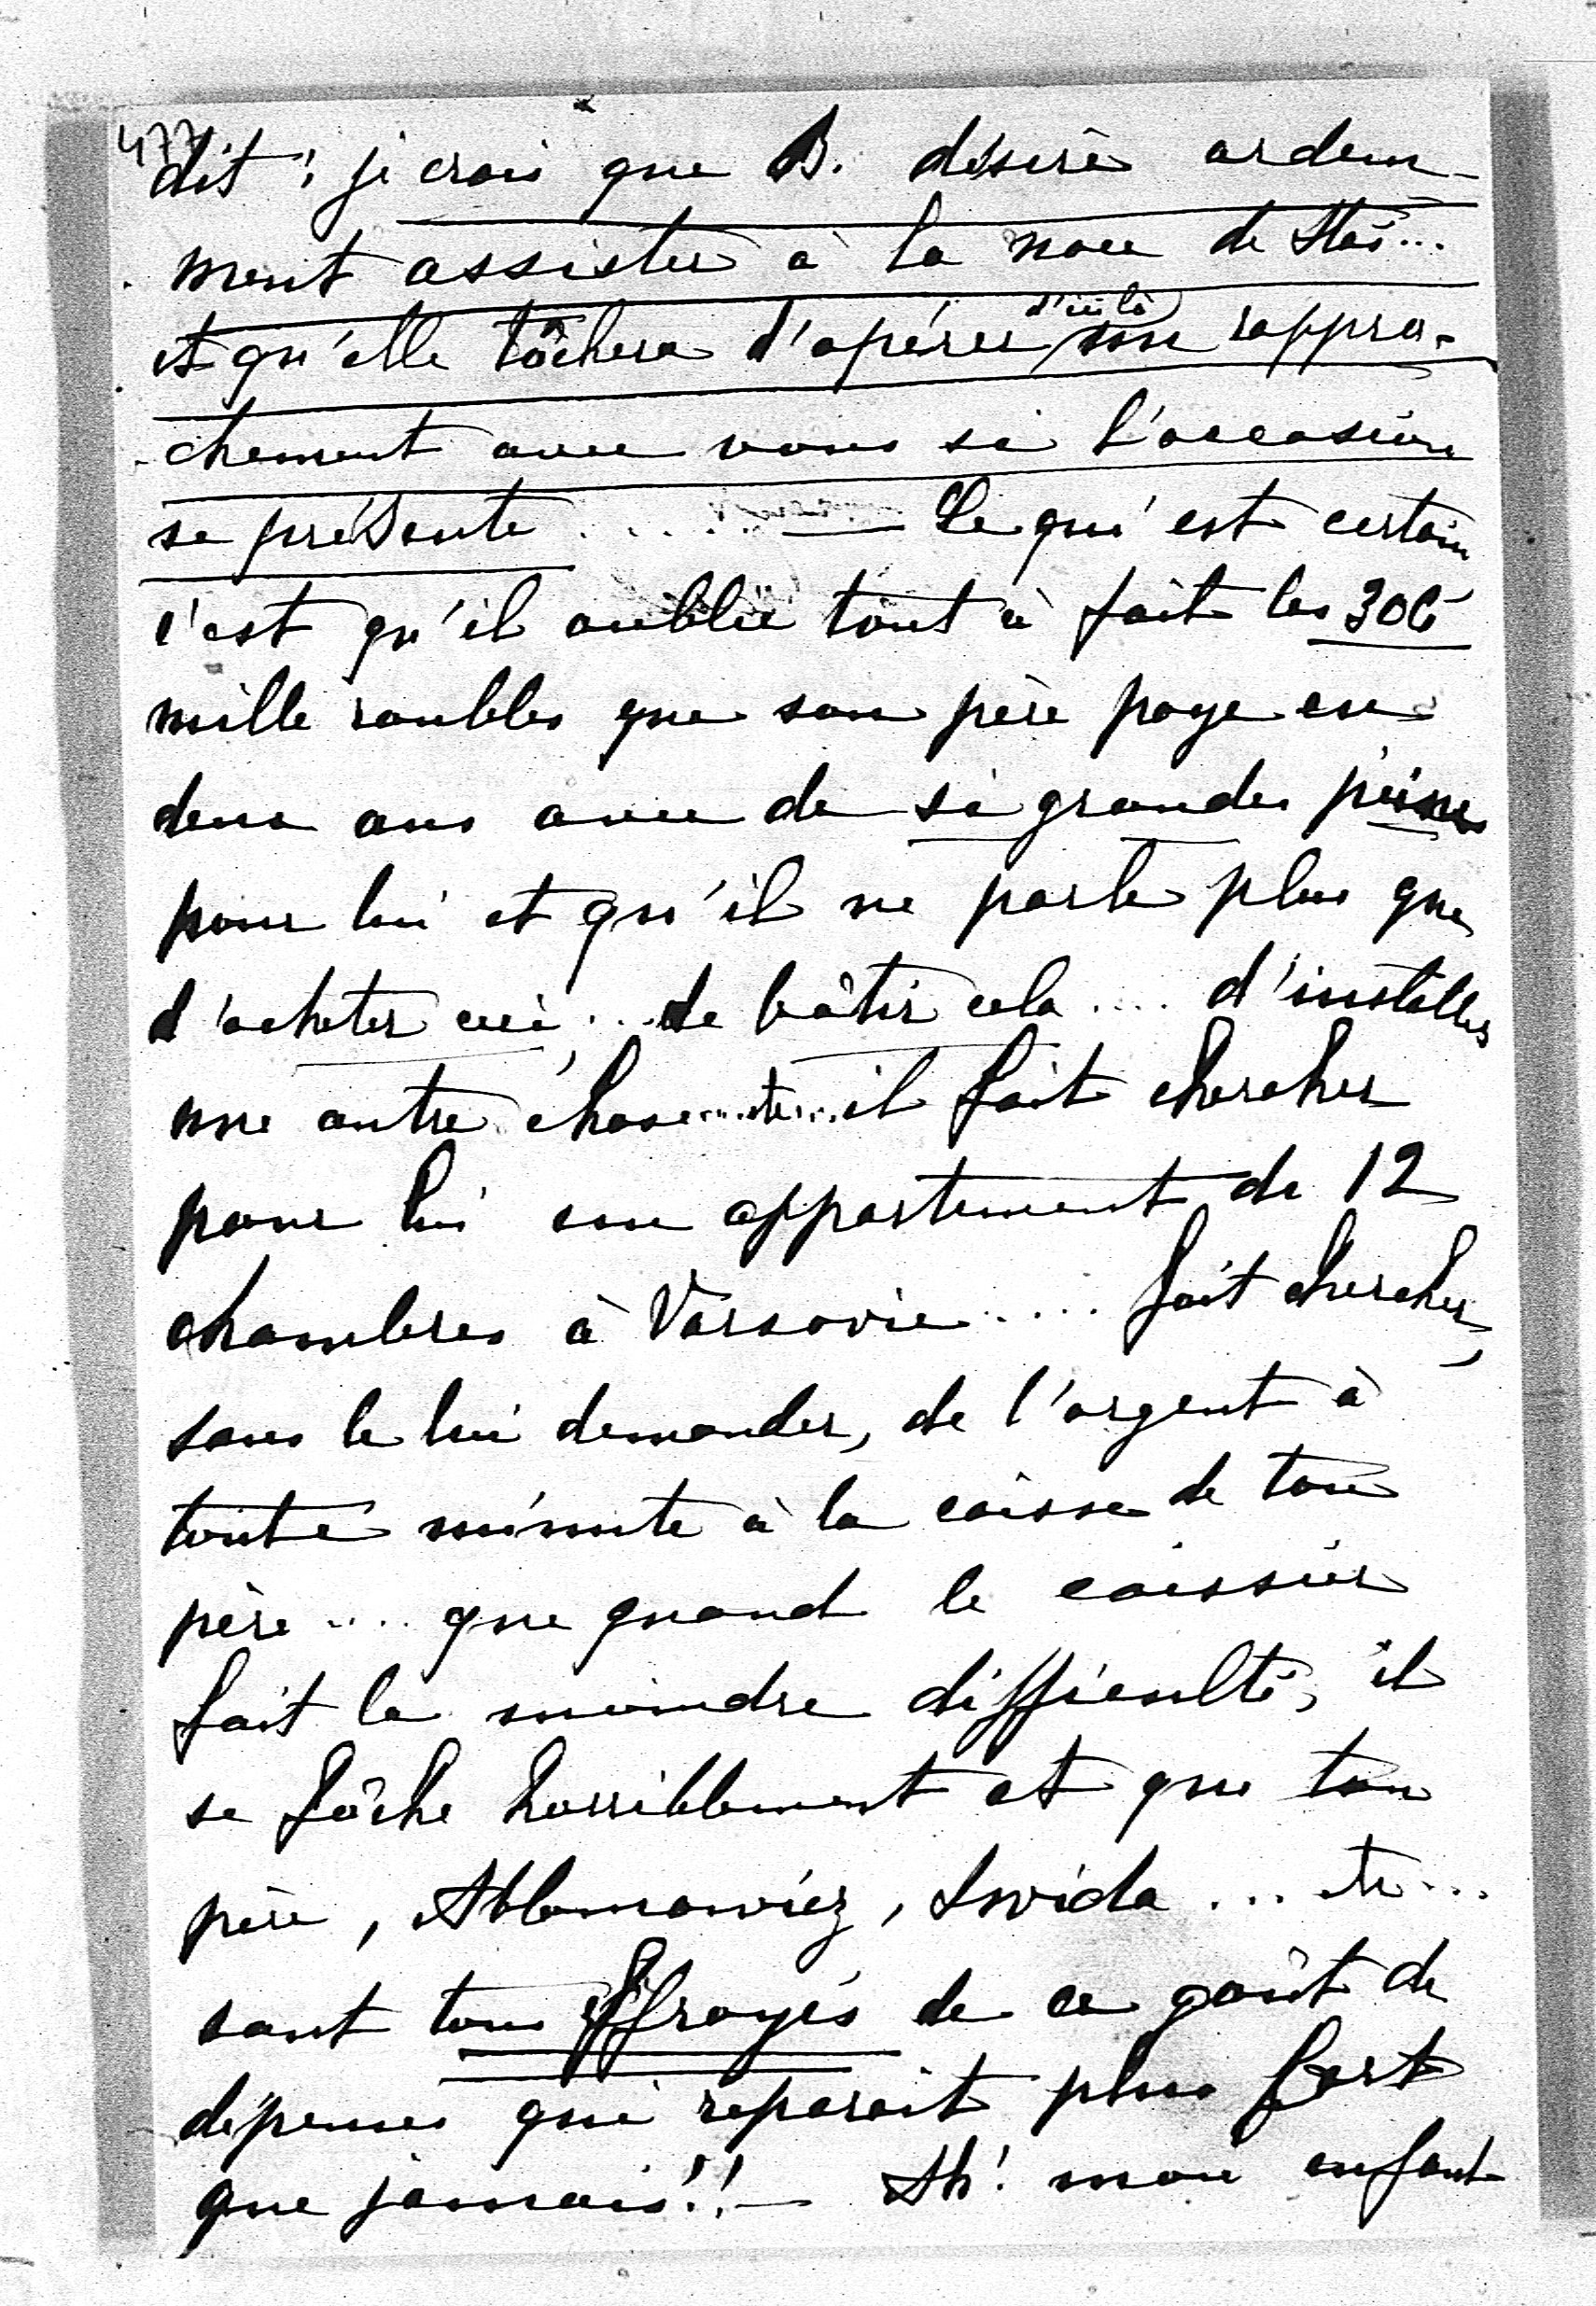 477
dit: je crois que B. désire ardem-
ment assister à la noce de Stas...
et qu'elle tâchera d'opérer d'ici là un rappro-
chement avec vous si l'occasion
se présente..... — Ce qui est certain
c'est qu'il oublie tout à fait les 300
mille roubles que son père paye en
deux ans avec de si grandes peines
pour lui et qu'il ne parle plus que
d'acheter ceci,... de bâtir cela.... d'installer
une autre chose....etc... il fait chercher
pour lui un appartement de 12
chambres à Varsovie.... fait chercher,
sans le lui demander, de l'argent à
toute minute à la caisse de ton
père.... que quand le caissier
fait la moindre difficulté, il
se fâche horriblement et que ton
père, Ablamowicz, Swida... etc...
sont tous effrayés de ce goût de
dépenses qui reparait plus fort
que jamais!! — Ah! mon enfant